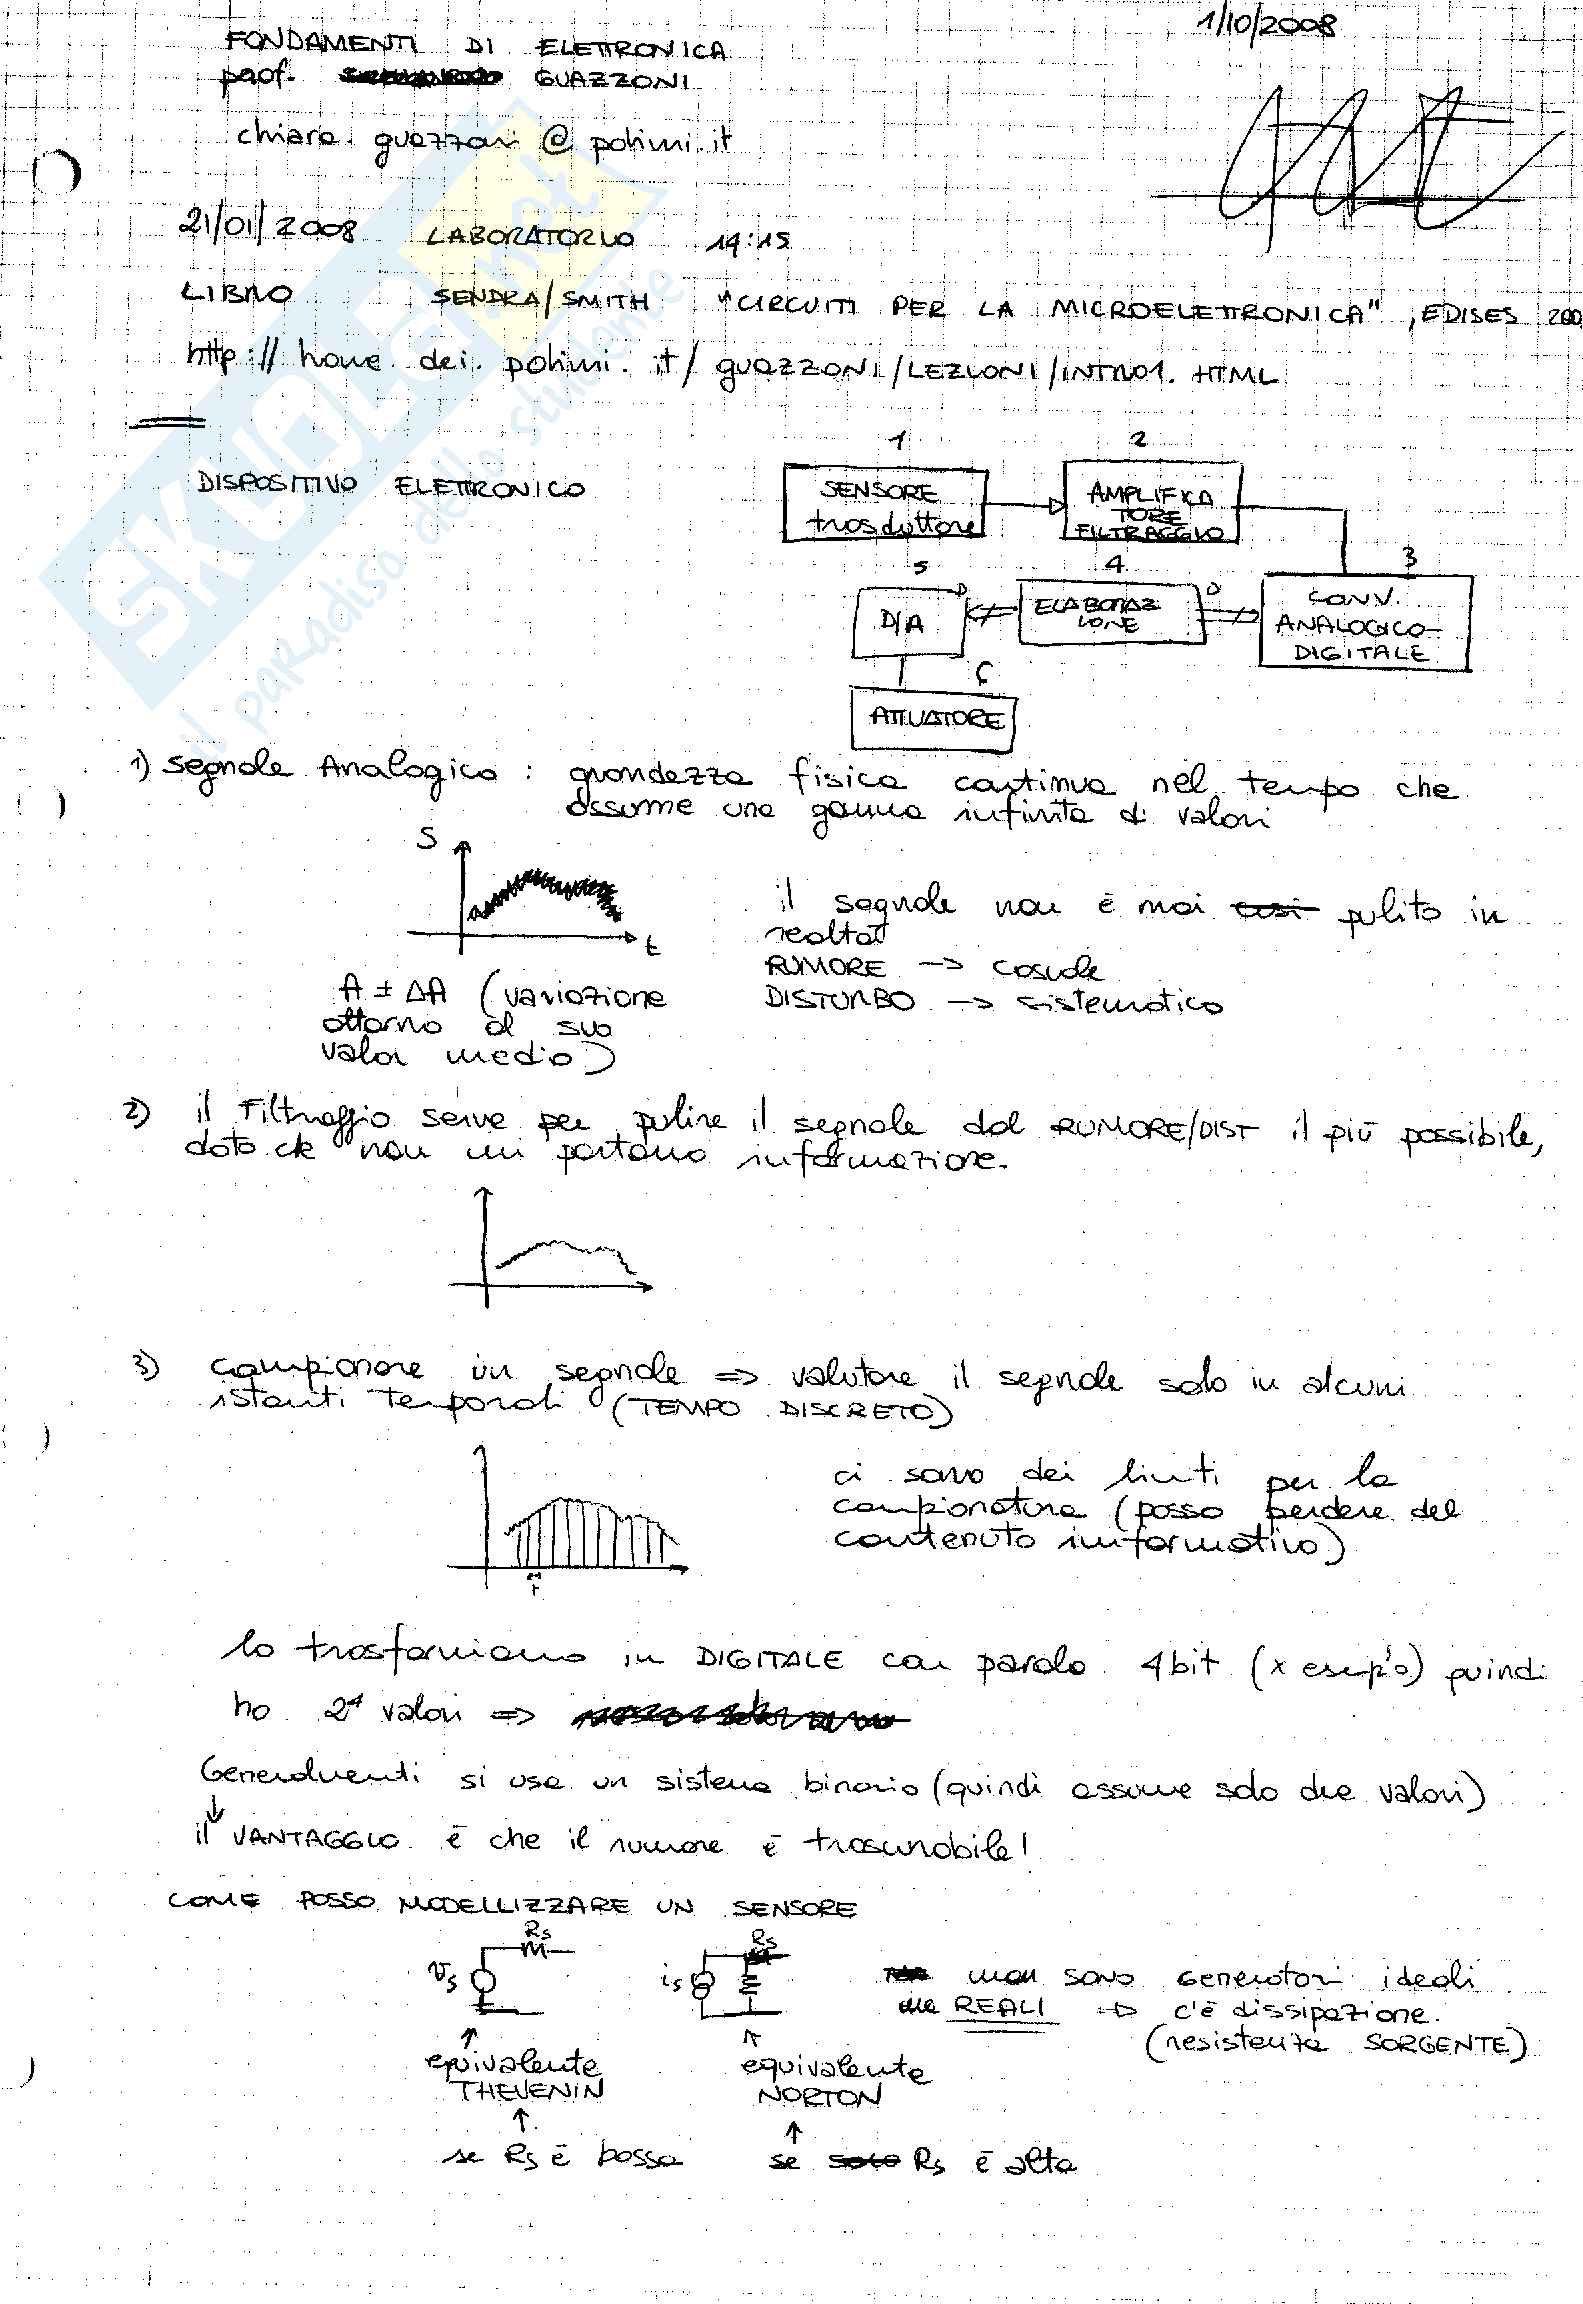 1/10/2008
FONDAMENTI DI ELETTRONICA
prof. GUAZZONI
chiara.guazzoni @ polimi.it
21/01/2008 LABORATORIO 14:15
LIBRO SENDRA/SMITH "CIRCUITI PER LA MICROELETTRONICA", EDISES 200
http://home.dei.polimi.it/guazzoni/LEZIONI/INTRO1.HTML
DISPOSITIVO ELETTRONICO
1
SENSORE
trasduttore
2
AMPLIFICA
TORE
FILTRAGGIO
3
CONV.
ANALOGICO-
DIGITALE
4
ELABORAZ
IONE
5
D/A
6
ATTUATORE
1) segnale Analogico : grandezza fisica continua nel tempo che
assume una gamma infinita di valori
S
t
il segnale non è mai così pulito in
realtà
RUMORE -> casuale
DISTURBO -> sistematico
A ± ΔA (variazione
attorno al suo
valor medio)
2) il Filtraggio serve per pulire il segnale dal RUMORE/DIST il più possibile,
dato che non mi portano informazione.
3) campionare un segnale => valutare il segnale solo in alcuni
istanti temporali (TEMPO DISCRETO)
T
ci sono dei limiti per la
campionatura (posso perdere del
contenuto informativo)
lo trasformiamo in DIGITALE con parola 4bit (x esempio) quindi
ho 2⁴ valori =>
Generalmenti si usa un sistema binario (quindi assume solo due valori)
↓
il VANTAGGIO è che il rumore è trascurabile!
COME POSSO MODELLIZZARE UN SENSORE
Rs
Vs
Rs
is
non sono generatori ideali
ma REALI => c'è dissipazione.
(resistenza SORGENTE)
↑
equivalente
THEVENIN
↑
se Rs è bassa
↑
equivalente
NORTON
↑
se solo Rs è alta
SKUOLA.net
il paradiso dello studente